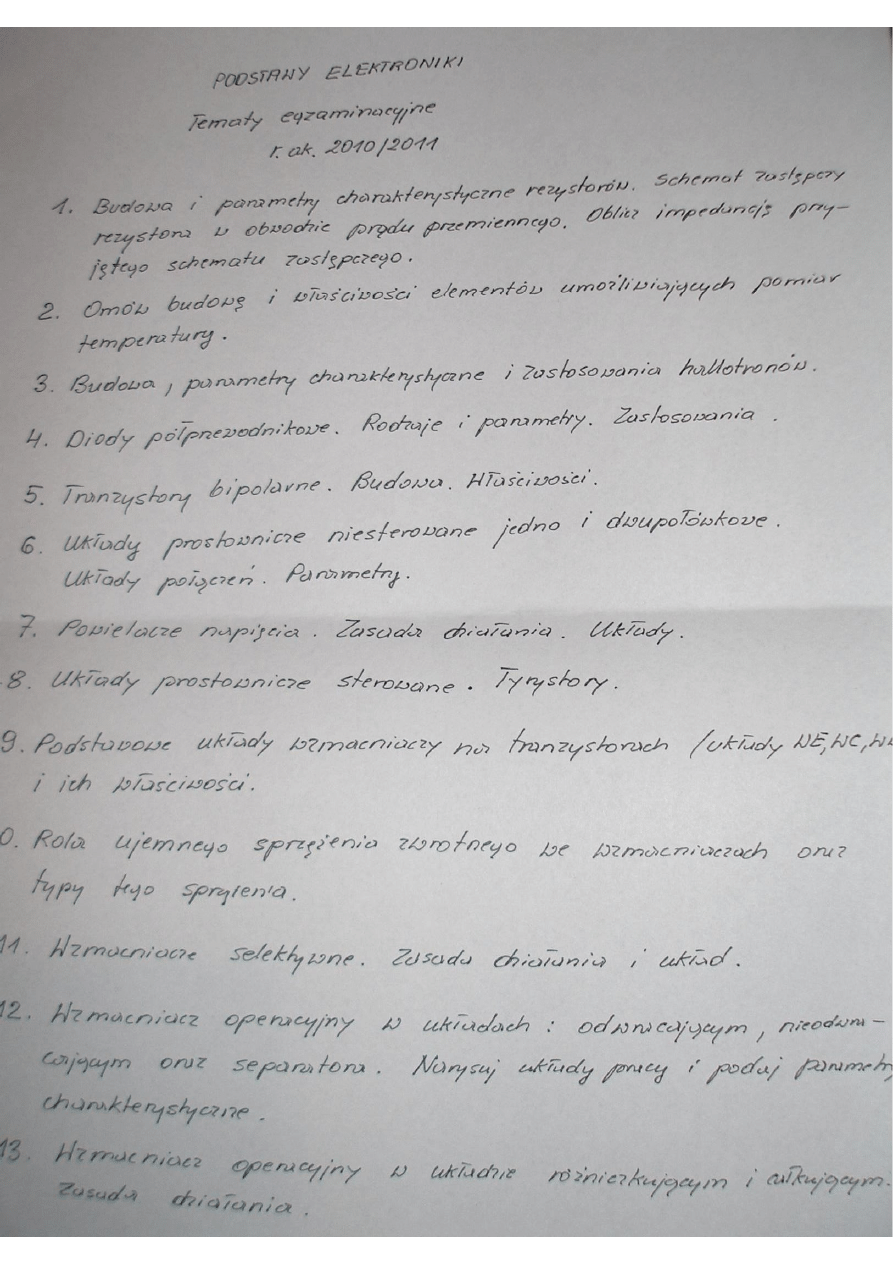 PODSTAWY ELEKTRONIKI
Tematy egzaminacyjne
r. ak. 2010/2011
1. Budowa i parametry charakterystyczne rezystorów. Schemat zastępczy
rezystora w obwodzie prądu przemiennego. Oblicz impedancję przy-
jętego schematu zastępczego.
2. Omów budowę i właściwości elementów umożliwiających pomiar
temperatury.
3. Budowa, parametry charakterystyczne i zastosowania hallotronów.
4. Diody półprzewodnikowe. Rodzaje i parametry. Zastosowania.
5. Tranzystory bipolarne. Budowa. Właściwości.
6. Układy prostownicze niesterowane jedno i dwupołówkowe.
Układy połączeń. Parametry.
7. Powielacze napięcia. Zasada działania. Układy.
8. Układy prostownicze sterowane. Tyrystory.
9. Podstawowe układy wzmacniaczy na tranzystorach /układy WE, WC, W
i ich właściwości.
0. Rola ujemnego sprzężenia zwrotnego we wzmacniaczach oraz
typy tego sprzężenia.
11. Wzmacniacze selektywne. Zasada działania i układ.
12. Wzmacniacz operacyjny w układach: odwracającym, nieodwra-
cającym oraz separatora. Narysuj układy pracy i podaj parametr
charakterystyczne.
13. Wzmacniacz operacyjny w układzie różniczkującym i całkującym.
Zasada działania.